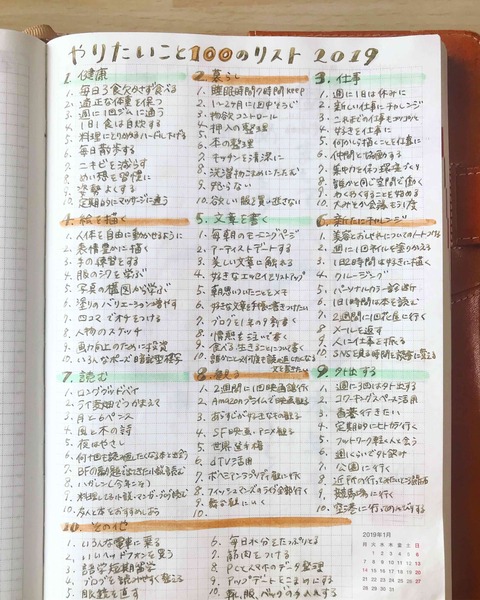 やりたいこと100のリスト 2019
1. 健康
1. 毎日3食欠かさず食べる
2. 適正な体重を保つ
3. 週に1回ジムに通う
4. 1日1食は自炊する
5. 料理にとりかかるハードル下げる
6. 毎日散歩する
7. ニキビを減らす
8. ぬい想を習慣に
9. 姿勢よくする
10. 定期的にマッサージに通う
2. 暮らし
1. 睡眠時間7時間keep
2. 1〜2ヶ月に1回中そうじ
3. 物欲コントロール
4. 押入の整理
5. 本の整理
6. 机の整理
7. キッチンを清潔に
8. 洗濯物ためずにたたむ
9. 散らさない
10. 欲しい服を買い逃さない
3. 仕事
1. 週に1日は休みに
2. 新しい仕事にチャレンジ
3. これまでの仕事をコツコツと
4. 好きな仕事に
5. 何かしら描くことを仕事に
6. 仲間と協働する
7. 集中力を保つ環境づくり
8. 誰かと同じ空間で働く
9. わくわくすることを始める
4. 絵を描く
1. 人体を自由に動かせるように
2. 表情豊かに描く
3. 手の練習をする
4. 服のシワを学ぶ
5. 写真の構図から学ぶ
6. 塗りのバリエーション増やす
7. 四コマでオチをつける
8. 人物のスケッチ
9. 画力向上のために投資
10. いろんなポーズ
5. 文章を書く
1. 毎朝のモーニングページ
2. アーティストデートする
3. 美しい文章に触れる
4. 好きなエッセイリストアップ
5. 朝思いついたことをメモ
6. 好きな文章を手帳に書きつけたい
7. ブログを1年の9割書く
8. 情熱を注いで書く
9. 食べる、生きることについて書く
6. 新たにチャレンジ
1. 美容とおしゃれについてのノートつくる
2. 週に1回ネイルを塗りかえる
3. 1日2時間は好きに描く
4. クレージング
5. パーソナルカラー診断
6. 1日1時間は本を読む
7. 2週間に1回花屋に行く
8. メールを返す
9. 人に仕事を振る
10. SNSを見る時間を読書に変える
7. 読む
1. ロング・グッドバイ
2. ライ麦畑でつかまえて
3. 月と六ペンス
4. 風と木の詩
5. 夜はやさし
6. 何十回も読み返したくなる本と出会う
8. ハガレン(今年こそ)
9. 料理してみる
10. 友人と本をおすすめしあう
8. 観る
1. 2週間に1回映画館行く
2. Amazonプライムで映画観る
4. SF映画、アニメ観る
5. 世界選手権
6. dTV活用
7. ボヘミアンラプソディ観に行く
8. フィッシュマンズのライブ全部行く
9. 舞台観にいく
10.
9. 外出する
1. 週に3回は外出する
2. コワーキングスペース活用
3. 香港行きたい
4. 定期的にヒトカラ行く
5. フットワーク軽く人と会う
6. 週1くらいで外飲み
7. 公園に行く
8. 近所の行ってみたいところ開拓
9. 競馬場に行く
10. 空港に行って飲みする
10. その他
1. いろんな電車に乗る
2. いいヘッドフォンを買う
3. 語学短期留学
4. ブログを読みやすく整える
5. 眼鏡を直す
6. 毎日水分をたっぷりとる
7. 筋肉をつける
8. PCとスマホのデータ整理
9. アップデートをこまめにする
10. 靴、服、バッグの手入れする
2019年1月
月 火 水 木 金 土 日
1 2 3 4 5 6
7 8 9 10 11 12 13
14 15 16 17 18 19 20
21 22 23 24 25 26 27
28 29 30 31